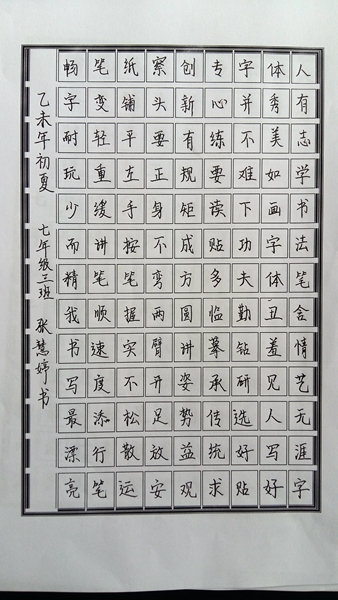 人有志学书法笔舍情艺无涯字
体秀美如画字体丑羞见人写好
字并不难下功夫勤钻研选好贴
专心练要读贴多临摹承传统求
创新有规矩成方圆讲姿势益观
察头要正身不弯两臂开足放安
纸铺平左手按笔握实不松散运
笔变轻重缓讲笔顺速度添行笔
畅字耐玩少而精我书写最漂亮
乙未年初夏 七年级三班 张慧婷书